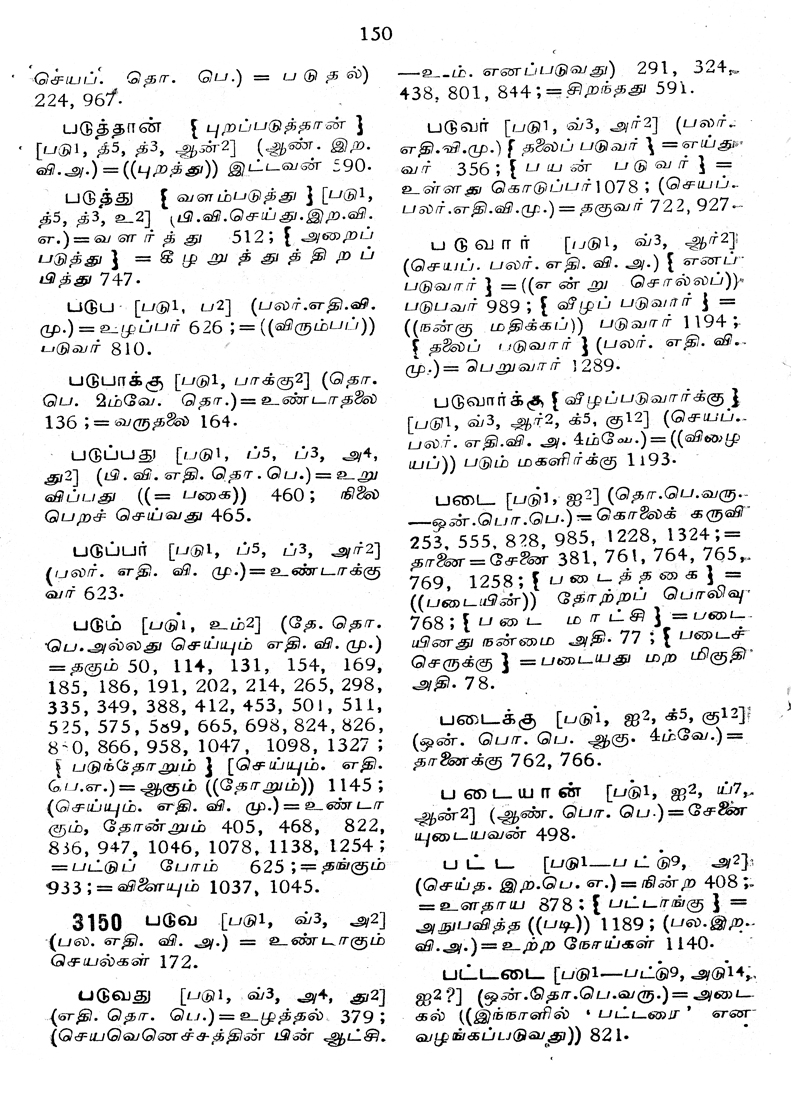 150
செயப். தொ. பெ.) = படுதல்)
224, 967.
படுத்தான் { புறப்படுத்தான் }
[படு1, த்5, த்3, ஆன்2] (ஆண். இற.
வி.அ.)=((புறத்து)) இட்டவன் 590.
படுத்து { வளம்படுத்து } [படு1,
த்5, த்3, உ2] (பி.வி.செய்து.இற.வி.
எ.)=வளர்த்து 512; { அறைப்
படுத்து } = கீழறுத்துத்திறப்
பித்து 747.
படுப [படு1, ப2] (பலர்.எதி.வி.
மு.)=உழப்பர் 626 ;=((விரும்பப்))
படுவர் 810.
படுபாக்கு [படு1, பாக்கு2] (தொ.
பெ. 2ம்வே. தொ.)=உண்டாதலை
136 ;=வருதலை 164.
படுப்பது [படு1, ப்5, ப்3, அ4,
து2] (பி. வி. எதி. தொ. பெ.)=உறு
விப்பது ((= பகை)) 460; நிலை
பெறச் செய்வது 465.
படுப்பர் [படு1, ப்5, ப்3, அர்2]
(பலர். எதி. வி. மு.)=உண்டாக்கு
வர் 623.
படும் [படு1, உம்2] (தே. தொ.
பெ.அல்லது செய்யும் எதி. வி. மு.)
=தகும் 50, 114, 131, 154, 169,
185, 186, 191, 202, 214, 265, 298,
335, 349, 388, 412, 453, 501, 511,
525, 575, 589, 665, 698, 824, 826,
866, 958, 1047, 1098, 1327 ;
{ படுந்தோறும் } [செய்யும். எதி.
பெ.எ.)=ஆகும் ((தோறும்)) 1145 ;
(செய்யும். எதி. வி. மு.)=உண்டா
கும், தோன்றும் 405, 468, 822,
836, 947, 1046, 1078, 1138, 1254 ;
=பட்டுப் போம் 625 ;=தங்கும்
933 ;=விளையும் 1037, 1045.
3150 படுவ [படு1, வ்3, அ2]
(பல. எதி. வி. அ.) = உண்டாகும்
செயல்கள் 172.
படுவது [படு1, வ்3, அ4, து2]
(எதி. தொ. பெ.)=உழத்தல் 379 ;
(செயவெனெச்சத்தின் பின் ஆட்சி.
—உ-ம். எனப்படுவது) 291, 324,
438, 801, 844 ;=சிறந்தது 591.
படுவர் [படு1, வ்3, அர்2] (பலர்.
எதி.வி.மு.) { தலைப் படுவர் } =எய்து
வர் 356; { பயன் படுவர் } =
உள்ளது கொடுப்பர் 1078 ; (செயப்.
பலர்.எதி.வி.மு.)=தகுவர் 722, 927.
படுவார் [படு1, வ்3, ஆர்2]
(செயப். பலர். எதி. வி. அ.) { எனப்
படுவார் } = ((என்று சொல்லப்))
படுபவர் 989 ; { வீழப் படுவார் } =
((நன்கு மதிக்கப்)) படுவார் 1194 ;
{ தலைப் படுவார் } (பலர். எதி. வி.
மு.)=பெறுவார் 1289.
படுவார்க்கு { வீழப்படுவார்க்கு }
[படு1, வ்3, ஆர்2, க்5, கு12] (செயப்.
பலர். எதி.வி. அ. 4ம்வே.)=((விழை
யப்)) படும் மகளிர்க்கு 1193.
படை [படு1, ஐ2] (தொ.பெ.வரு.
—ஒன்.பொ.பெ.)=கொலைக் கருவி
253, 555, 828, 985, 1228, 1324 ;=
தானை=சேனை 381, 761, 764, 765,
769, 1258 ; { படைத்தகை } =
((படையின்)) தோற்றப் பொலிவு
768 ; { படை மாட்சி } =படை
யினது நன்மை அதி. 77 ; { படைச்
செருக்கு } =படையது மற மிகுதி
அதி. 78.
படைக்கு [படு1, ஐ2, க்5, கு12]
(ஒன். பொ. பெ. ஆகு. 4ம்வே.)=
தானைக்கு 762, 766.
படையான் [படு1, ஐ2, ய்7,
ஆன்2] (ஆண். பொ. பெ.)=சேனை
யுடையவன் 498.
பட்ட [படு1—பட்டு9, அ2]
(செய்த. இற.பெ. எ.)=நின்ற 408 ;
=உளதாய 878 ; { பட்டாங்கு } =
அநுபவித்த ((படி)) 1189 ; (பல.இற.
வி.அ.)=உற்ற நோய்கள் 1140.
பட்டடை [படு1—பட்டு9, அடு14,
ஐ2?] (ஒன்.தொ.பெ.வரு.)=அடை
கல் ((இந்நாளில் ‘பட்டரை’ என
வழங்கப்படுவது)) 821.